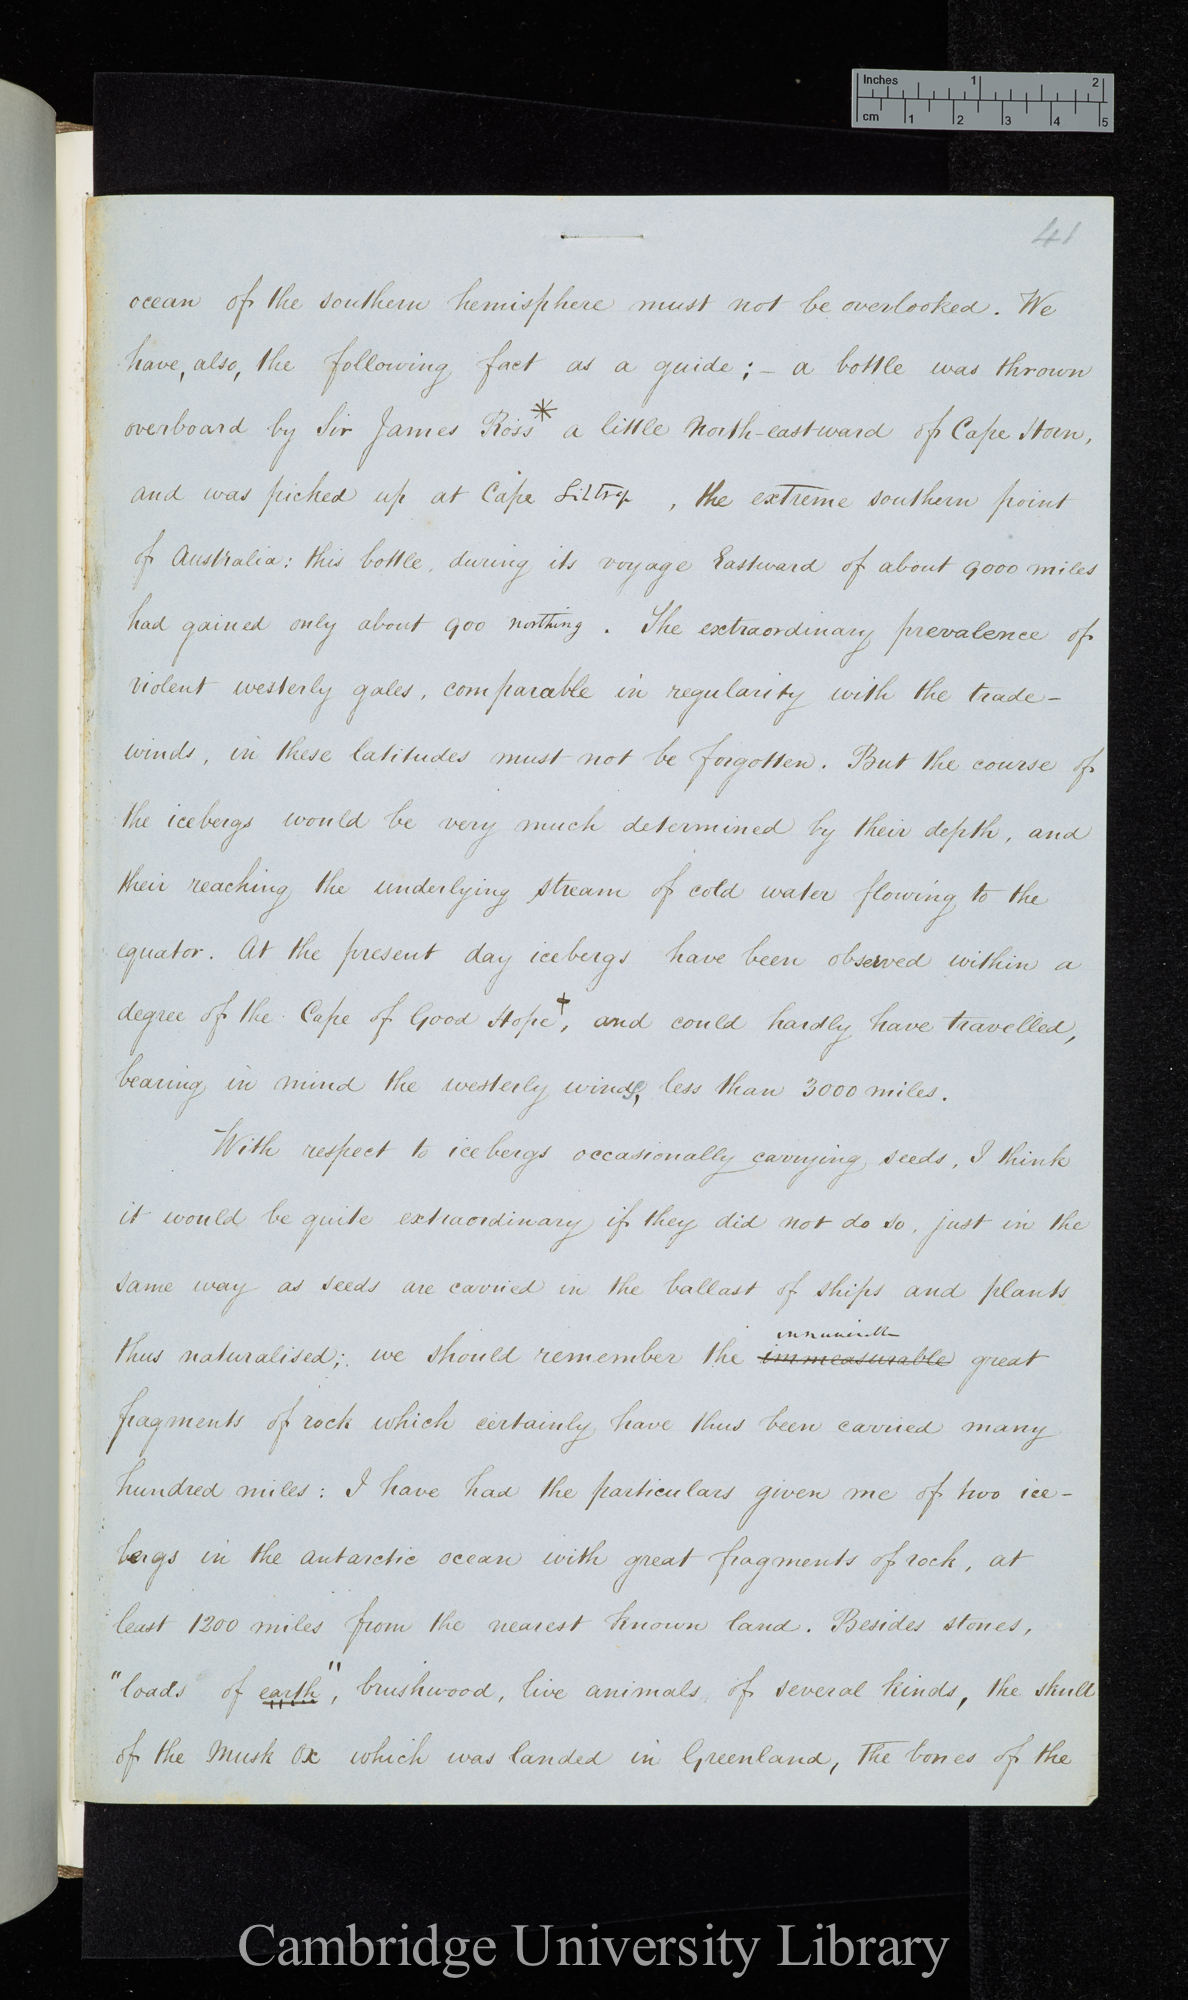 Inches 1 2
cm 1 2 3 4 5
41
ocean of the southern hemisphere must not be overlooked. We
have, also, the following fact as a guide; – a bottle was thrown
overboard by Sir James Ross* a little North-eastward of Cape Horn,
and was picked up at Cape , the extreme southern point
of Australia: this bottle, during its voyage Eastward of about 9000 miles
had gained only about 900 northing. The extraordinary prevalence of
violent westerly gales, comparable in regularity with the trade-
winds, in these latitudes must not be forgotten. But the course of
the icebergs would be very much determined by their depth, and
their reaching the underlying stream of cold water flowing to the
equator. At the present day icebergs have been observed within a
degree of the Cape of Good Hope†, and could hardly have travelled,
bearing in mind the westerly winds, less than 3000 miles.
With respect to icebergs occasionally carrying seeds, I think
it would be quite extraordinary if they did not do so, just in the
same way as seeds are carried in the ballast of ships and plants
thus naturalised; we should remember the immeasurable great
fragments of rock which certainly have thus been carried many
hundred miles: I have had the particulars given me of two ice-
bergs in the antarctic ocean with great fragments of rock, at
least 1200 miles from the nearest known land. Besides stones,
"loads of earth", brushwood, live animals of several kinds, the skull
of the Musk Ox which was landed in Greenland, the bones of the
Cambridge University Library